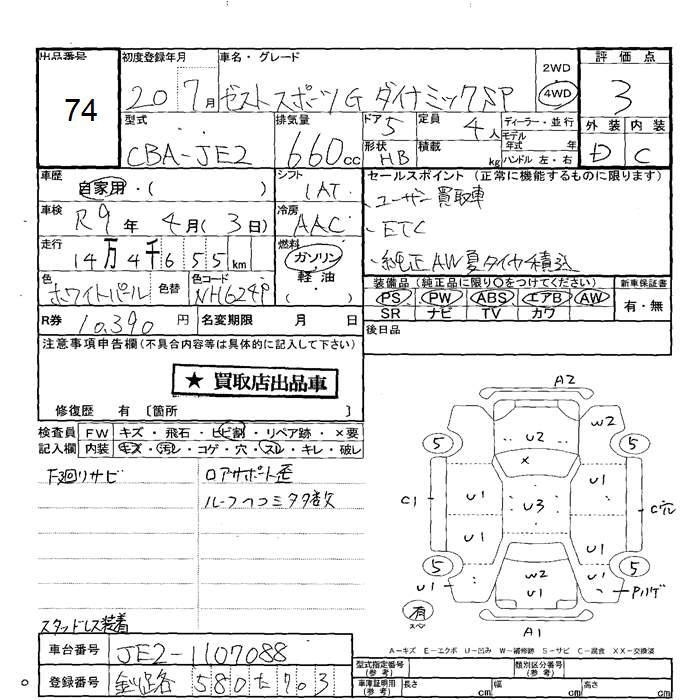 出品番号
74
初度登録年月
20 7月
車名・グレード
ゼストスポーツG ダイナミックSP
2WD
4WD
評価点
3
型式
CBA-JE2
排気量
660cc
ドア
5
定員
4人
形状
HB
積載
kg
ディーラー・並行
モデル
年式 年
ハンドル 左・右
外装 内装
D C
車歴
自家用・( )
シフト
IAT
車検
R9年 4月(3日)
冷房
AAC
走行
14万4千655km
燃料
ガソリン
軽油
色
ホワイトパール
色替
色コード
NH624P
R券 10,390円 名変期限 月 日
セールスポイント (正常に機能するものに限ります)
・ユーザー買取車
・ETC
・純正AW夏タイヤ積込
装備品 (純正品に限り○をつけてください) 新車保証書
PS PW ABS エアB AW 有・無
SR ナビ TV カワ
後日品
注意事項申告欄(不具合内容等は具体的に記入して下さい)
★ 買取店出品車
修復歴 有 〔箇所 〕
検査員 FW キズ・飛石・ヒビ割・リペア跡・×要
記入欄 内装 キズ・汚レ・コゲ・穴・スレ・キレ・破レ
下廻りサビ
ロアサポート歪
ルーフヘコミタタ数欠
スタッドレス装着
A2
W2
5 U2 5
×
C1 U1 U3 U1 C穴
U1 U1
5 W2 5
U1 U1 U1 Pハゲ
有
スペ
A1
A-キズ E-エクボ U-凹み W-補修跡 S-サビ C-腐食 XX-交換済
車台番号 JE2-1107088
登録番号 釧路 580 た 703
型式指定番号
(参考)
類別区分番号
(参考)
車庫証明用
(参考)
長さ cm 幅 cm 高さ cm